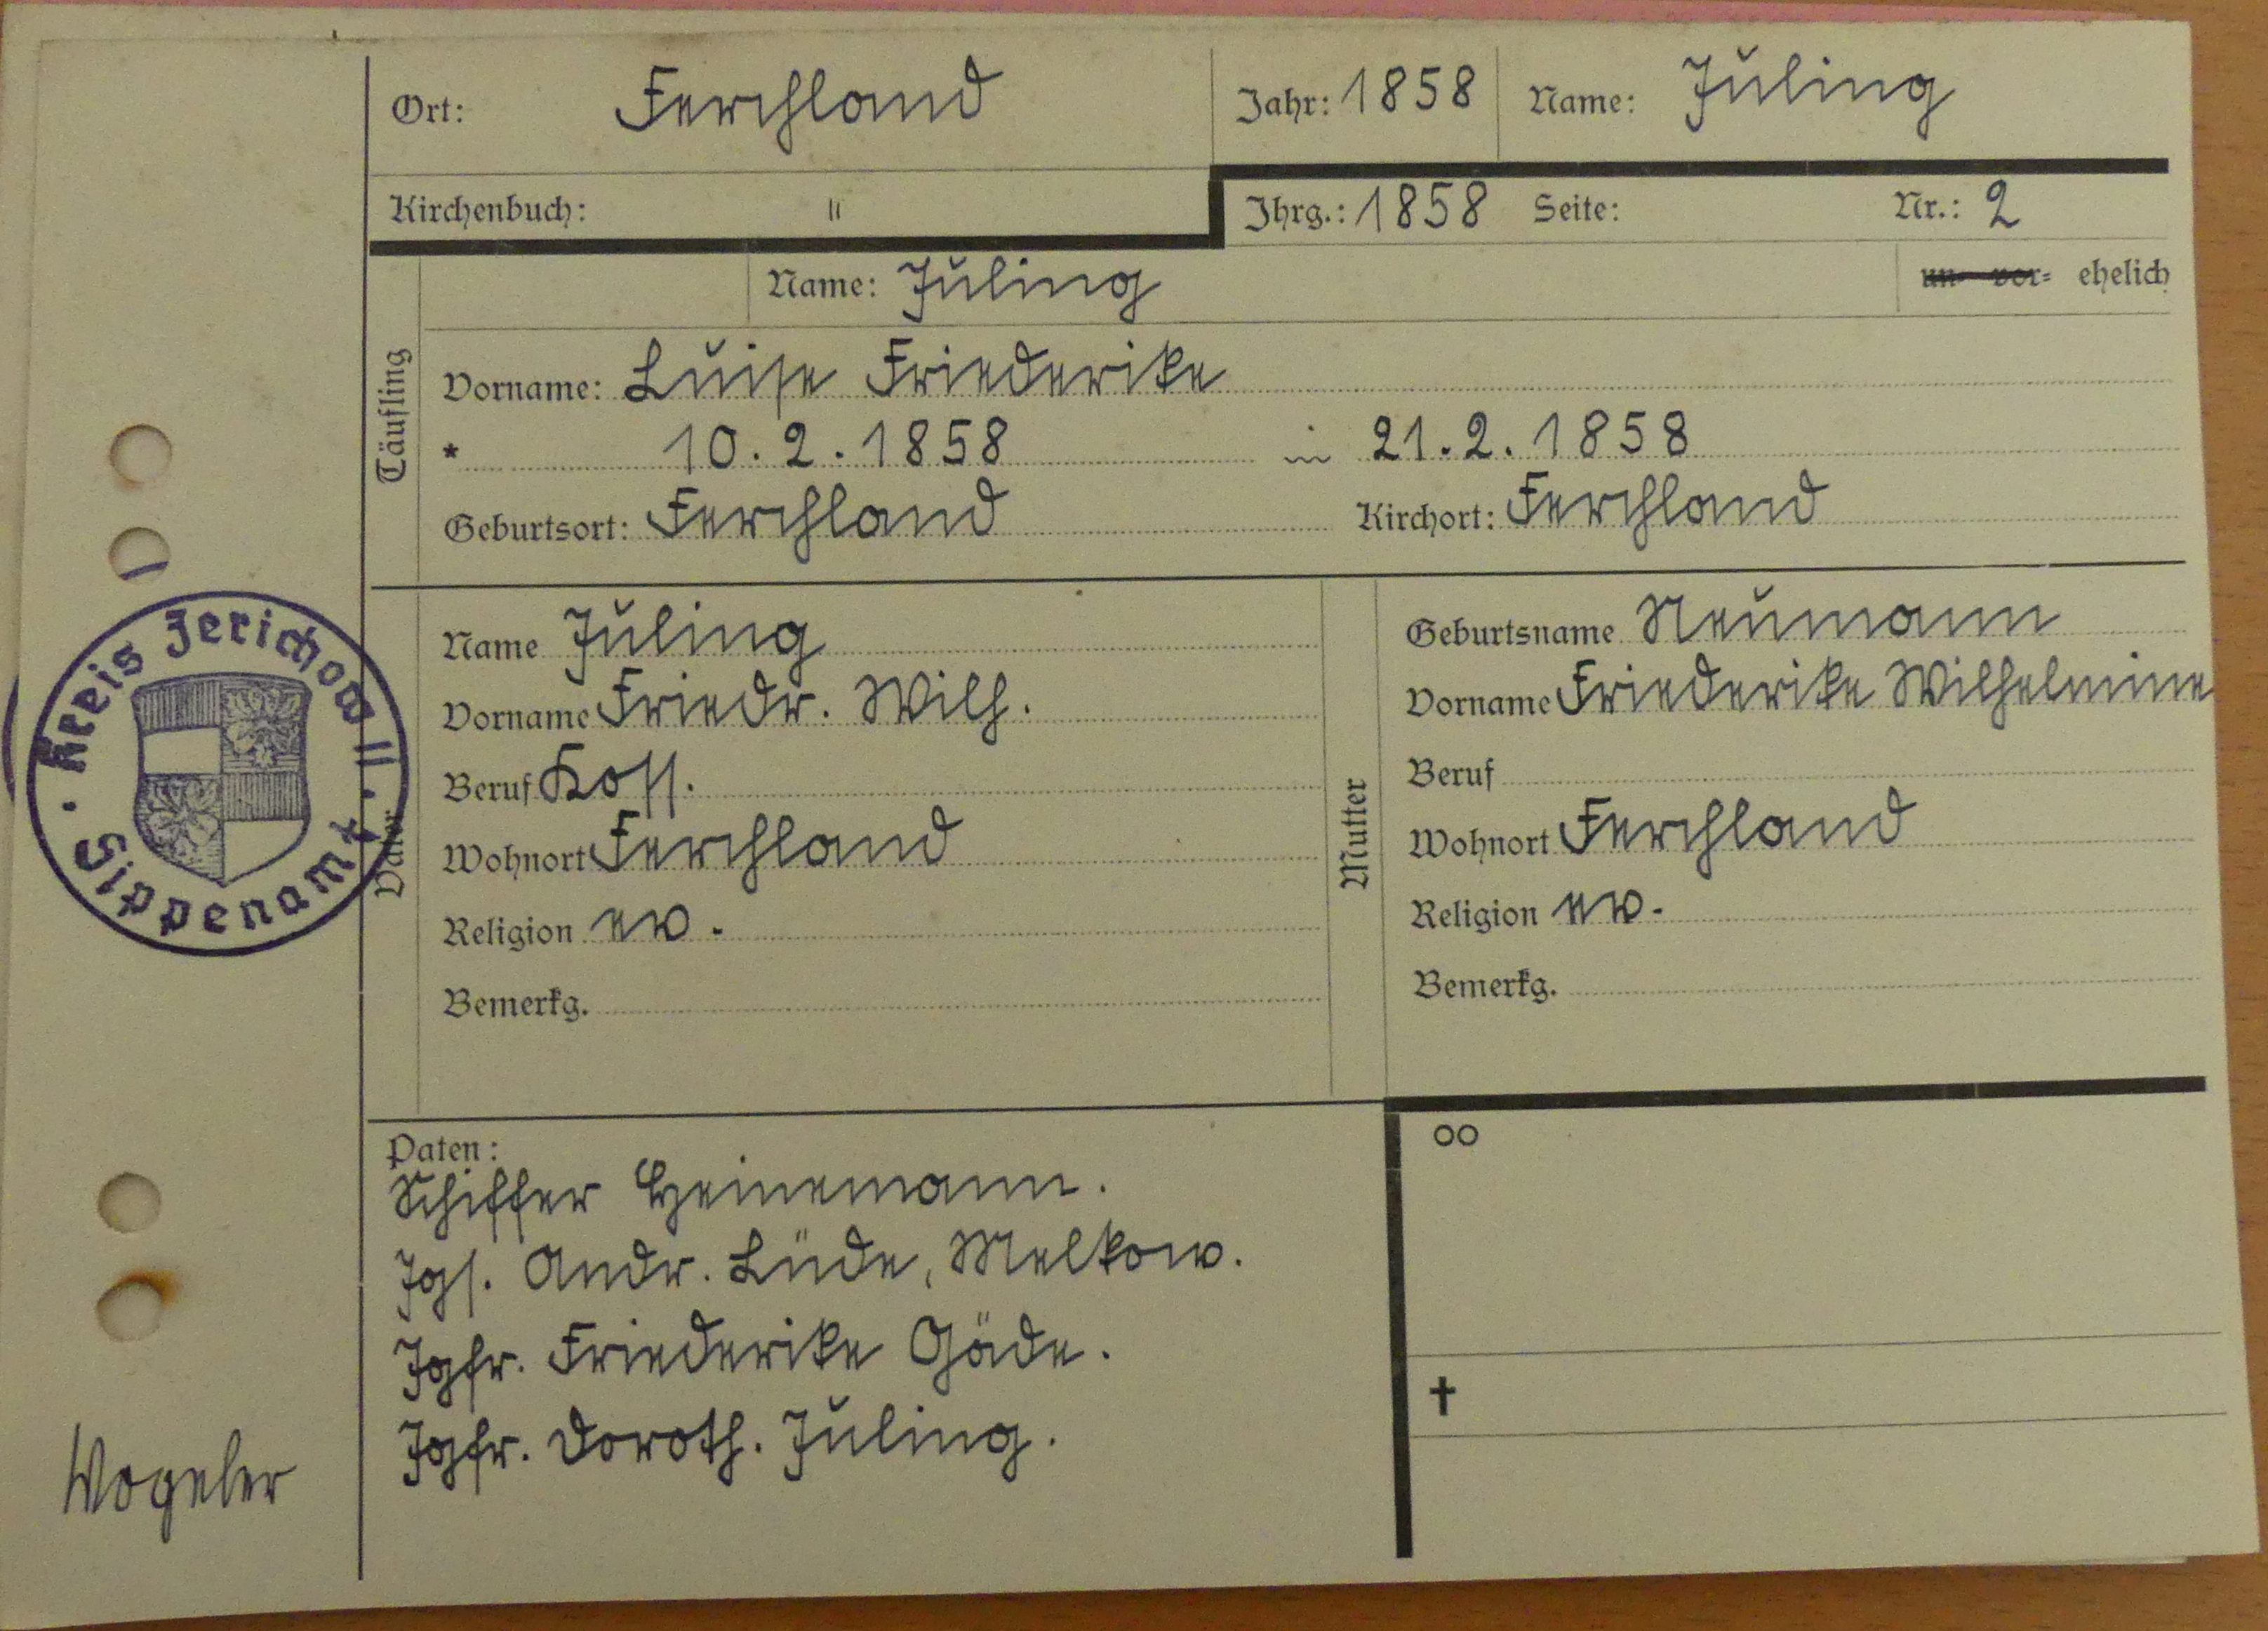 Ort: Ferchland Jahr: 1858 Name: Juling
Kirchenbuch: " Jhrg.: 1858 Seite: Nr.: 2
Name: Juling un- vor- ehelich
Täufling
Vorname: Luise Friederike
* 10.2.1858 21.2.1858
Geburtsort: Ferchland Kirchort: Ferchland
Kreis Jerichow II.
Sippenamt
Vater
Name Juling
Vorname Friedr. Wilh.
Beruf Koss.
Wohnort Ferchland
Religion ev.
Bemerkg.
Mutter
Geburtsname Neumann
Vorname Friederike Wilhelmine
Beruf
Wohnort Ferchland
Religion ev.
Bemerkg.
Paten:
Schiffer Heinemann.
Jgs. Andr. Lüde, Melkow.
Jgfr. Friederike Gäde.
Jgfr. Doroth. Juling.
oo
†
Wogeler